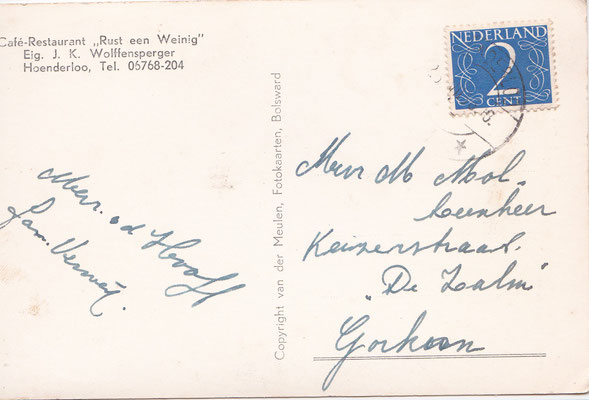 Café-Restaurant „Rust een Weinig"
Eig. J. K. Wolffensperger
Hoenderloo, Tel. 06768-204
NEDERLAND
2
CENT
Copyright van der Meulen, Fotokaarten, Bolsward
Mevr. v d Hooff
Fam. Verweij.
Mevr M Mol-
Leenheer
Keizerstraat.
"De Zalm"
Gorkum